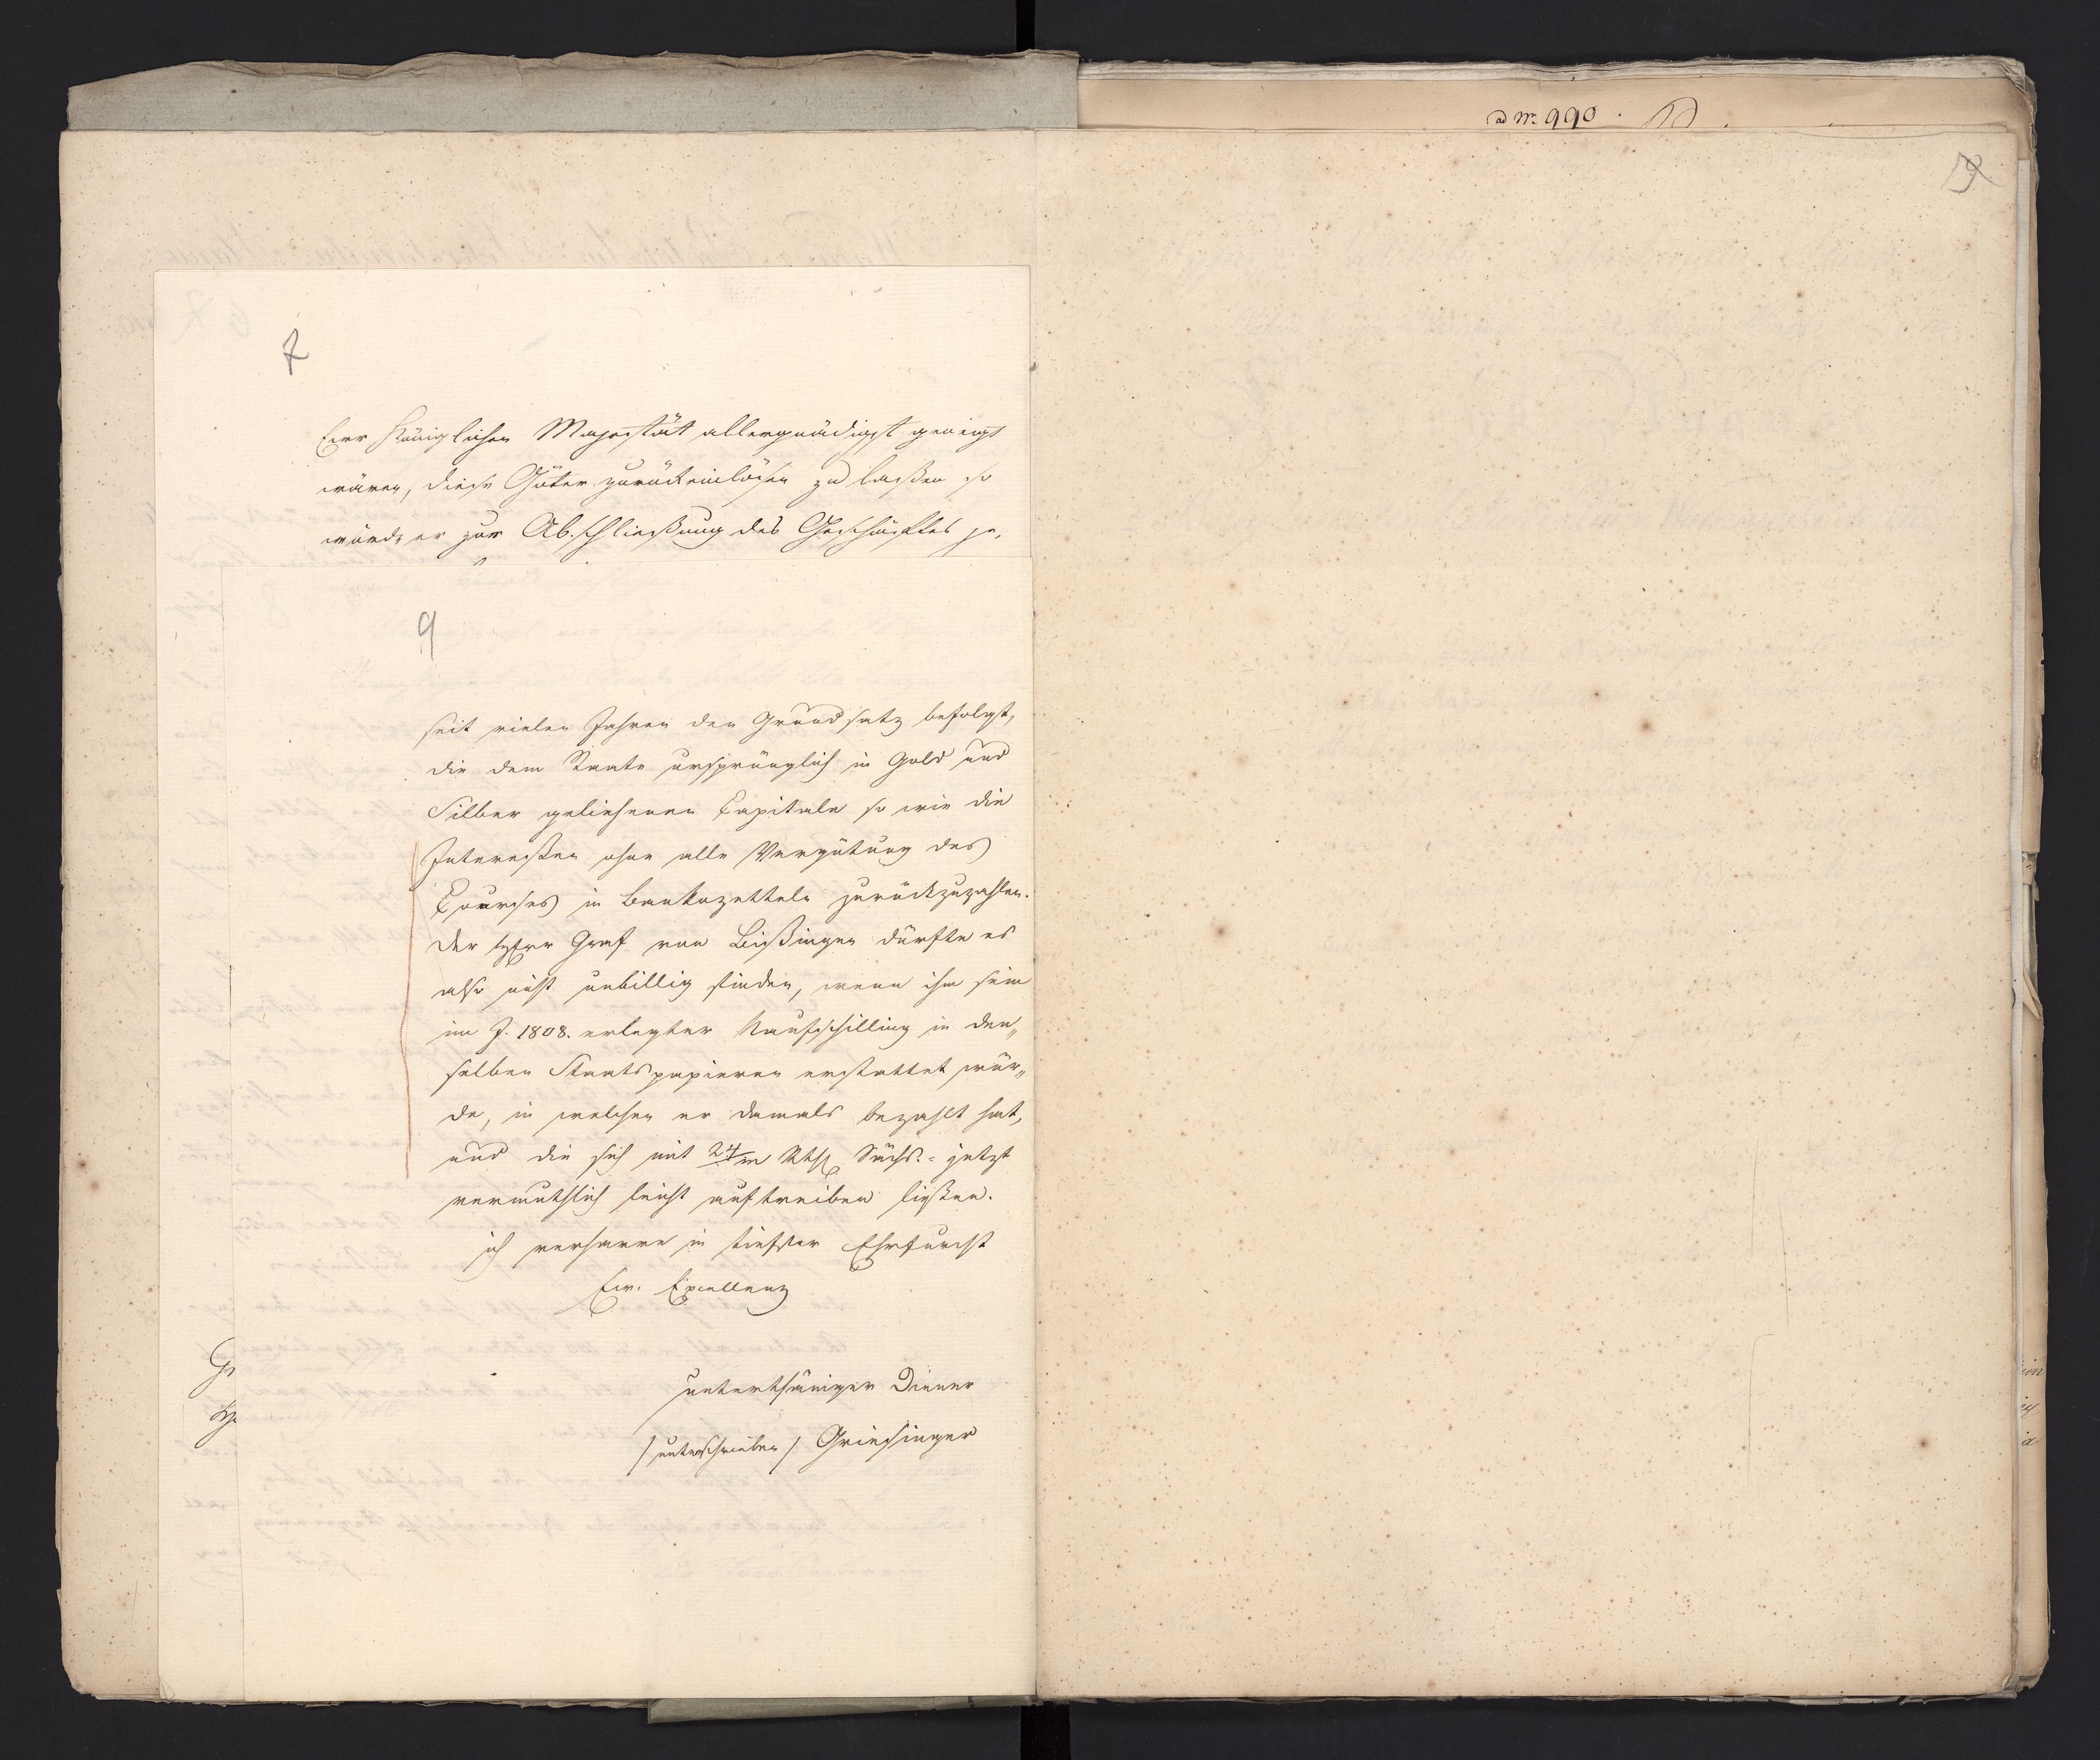 ad Nr. 990.
7
Eure Königlichen Majestät allergnädigst geneigt
wären, diese Güter zurückeinlösen zu laßen so
würde er zur Abschließung des Geschäftes je,
9
seit vielen Jahren den Grundsatz befolgt,
die dem Staate ursprünglich in Gold und
Silber geliehenen Capitale so wie die
Intereßen ohne alle Vergütung des
Courses in Bankozetteln zurückzuzahlen.
Der Herr Graf von Bißingen dürfte es
also nicht unbillig finden, wenn ihm sein
im J. 1808. erlegter Kaufschilling in den„
selben Staatspapieren erstattet wür„
de, in welchen er damals bezahlt hat,
und die sich mit 24/m Rthl Sächs. jetzt
vermuthlich leicht auftreiben ließen.
ich verharre in tiefster Ehrfurcht
Ew. Excellenz
unterthäniger Diener
/unterschrieben/ Griesinger